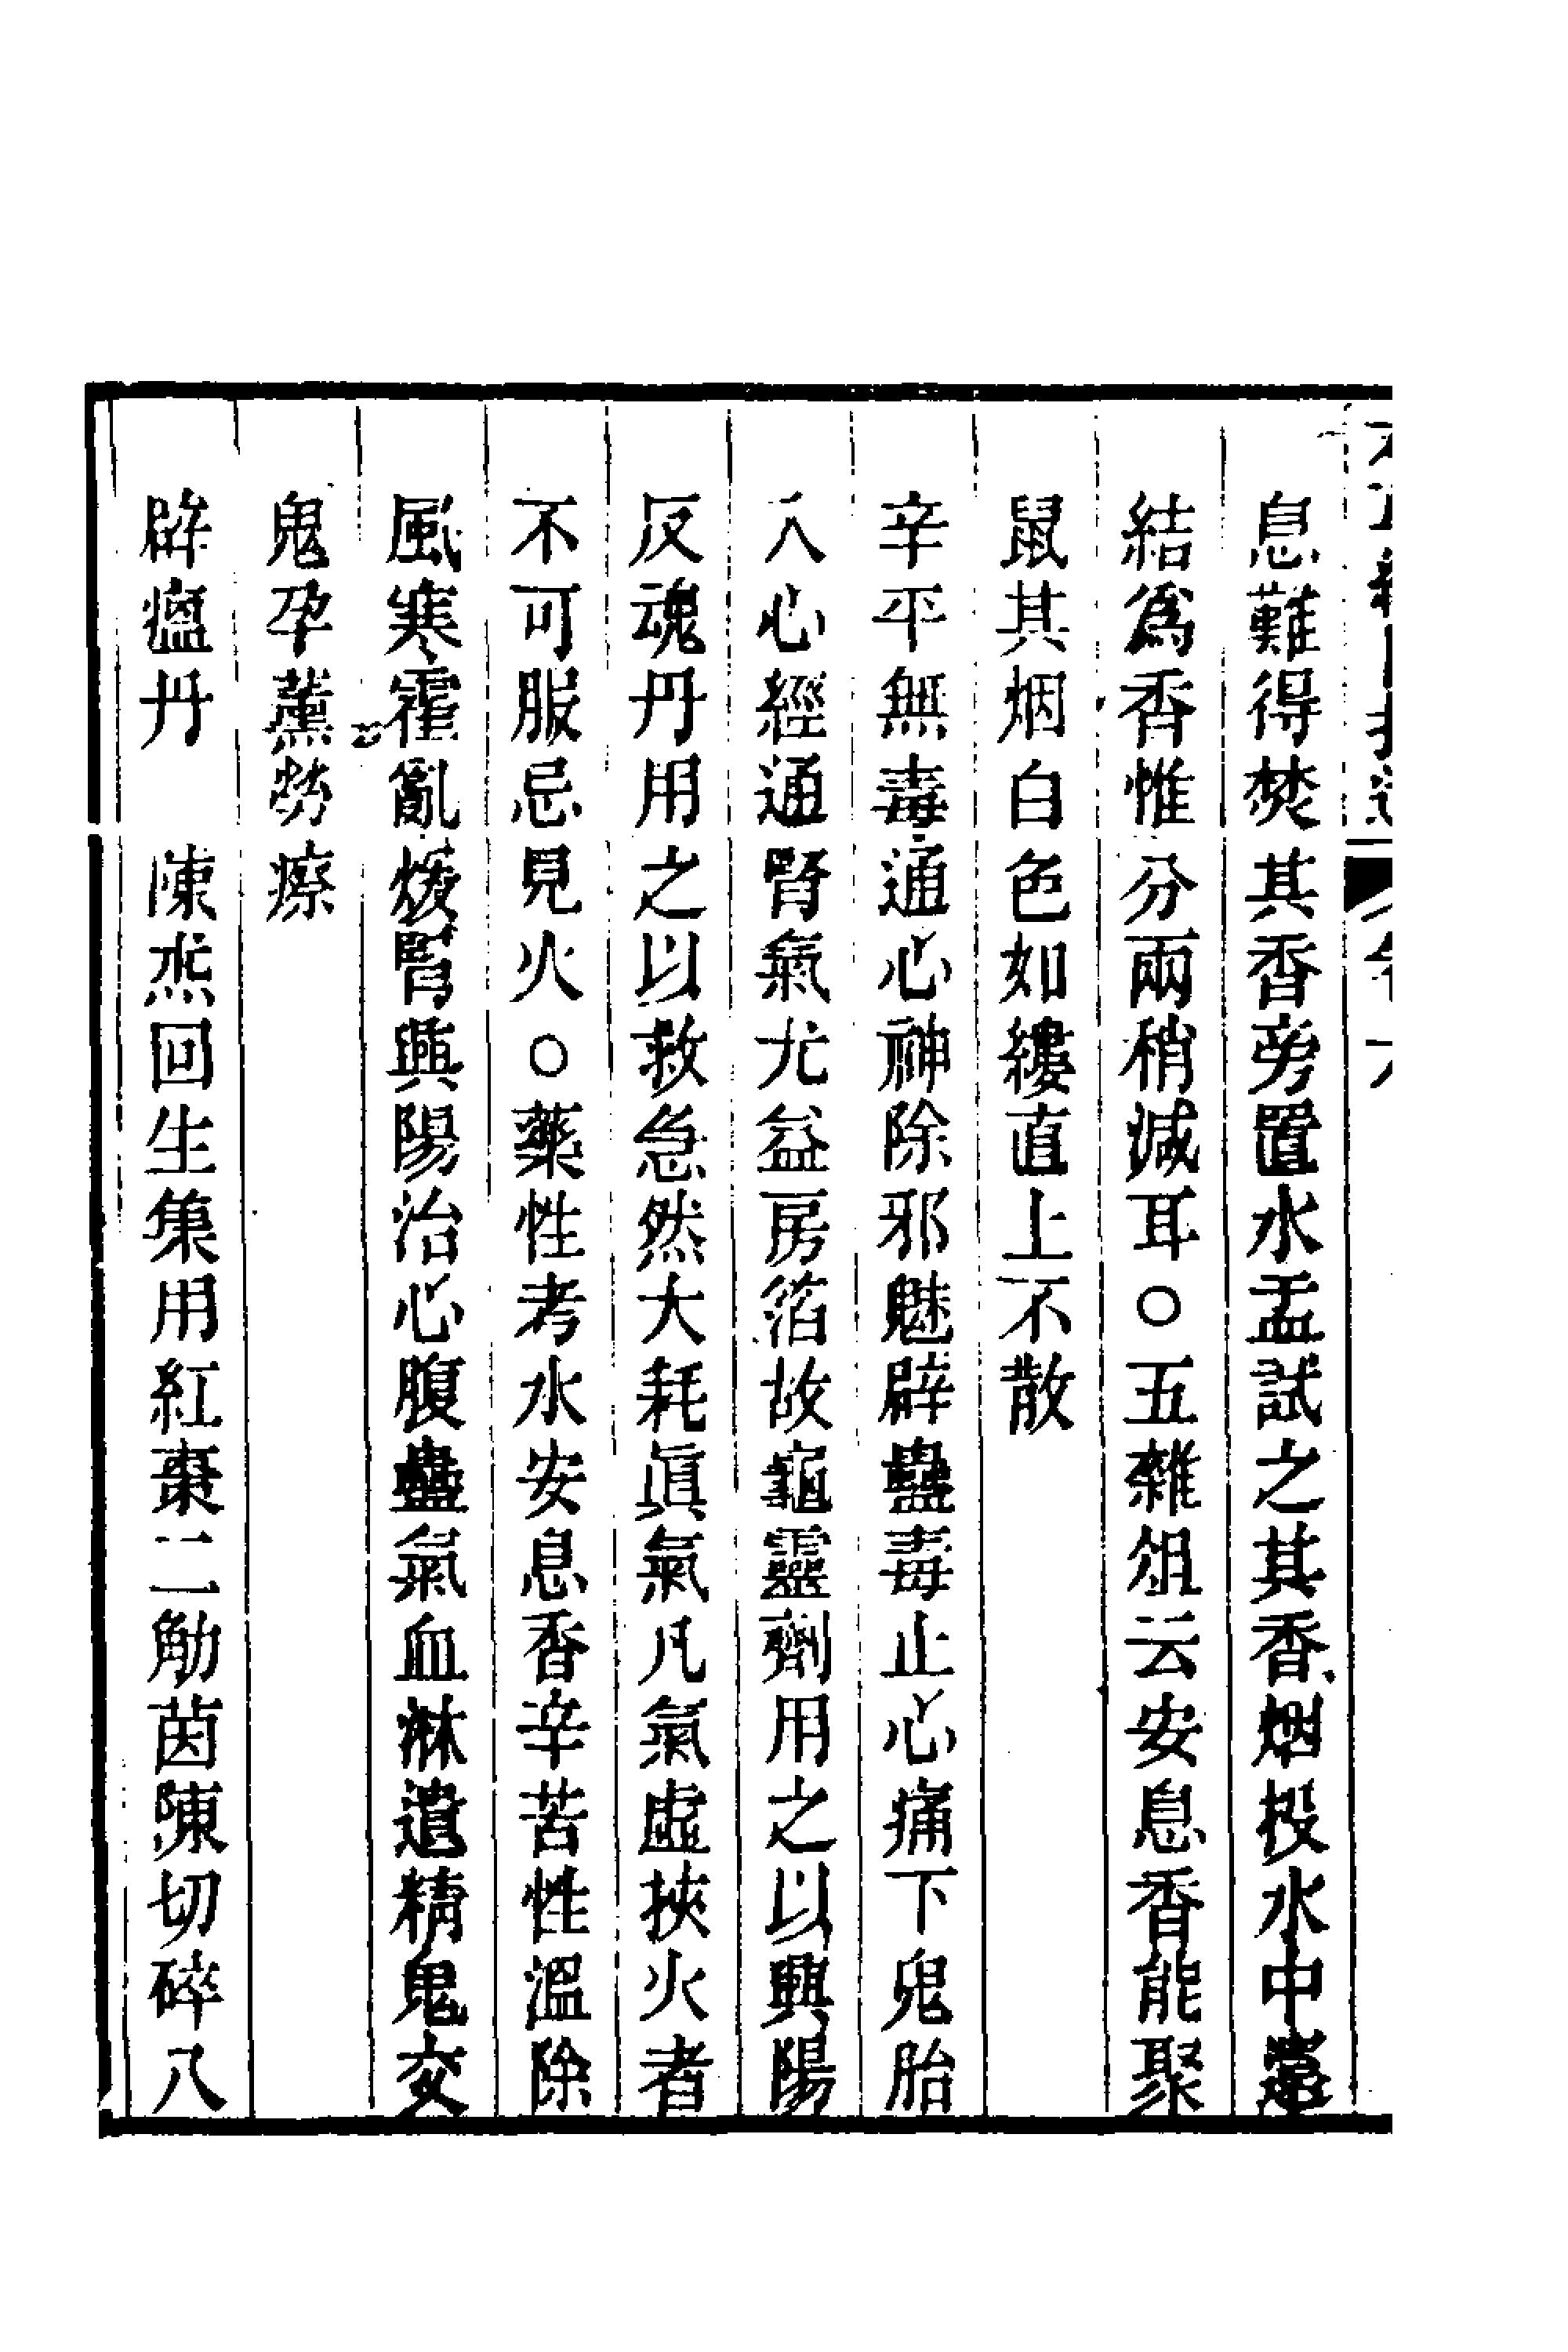 息難得焚其香旁置水盂試之其香烟投水中
結爲香惟分兩稍減耳○五雜俎云安息香能聚
鼠其烟白色如縷直上不散
辛平無毒通心神除邪魅辟蠱毒止心痛下鬼胎
入心經通腎氣尤益房箔故龜靈劑用之以興陽
反魂丹用之以救急然大耗眞氣凡氣虛挾火者
不可服忌見火○藥性考水安息香辛苦性溫除
風寒霍亂煖腎興陽治心腹蠱氣血淋遺精鬼交
鬼孕薰勞瘵
辟瘟丹　陳烝回生集用紅棗二觔茵陳切碎八